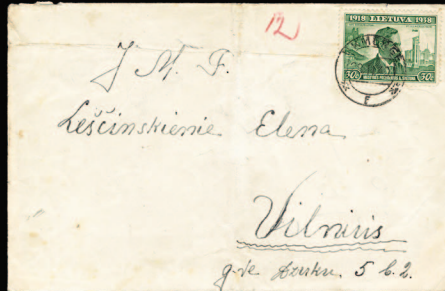 12
1918 LIETUVA 1938
30c 30c
J. M. F.
Leščinskienie Elena
Vilnius
g-vė 5 b. 2.